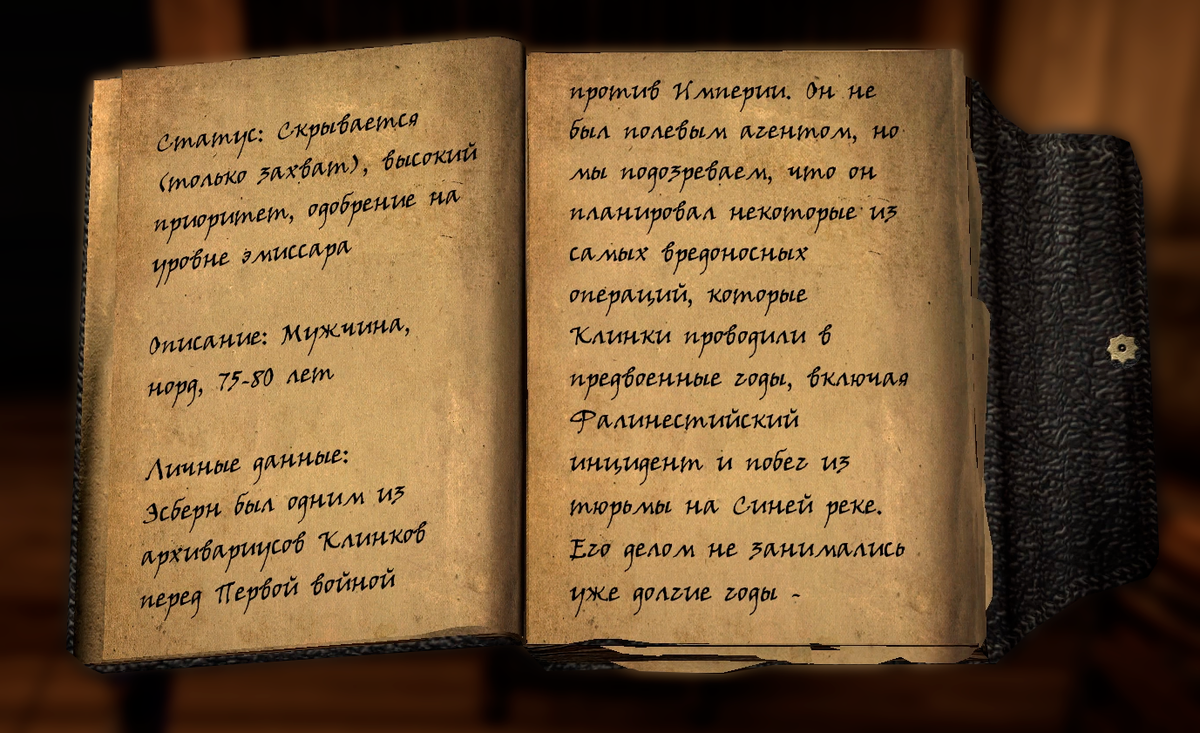 Статус: Скрывается
(только захват), высокий
приоритет, одобрение на
уровне эмиссара
Описание: Мужчина,
норд, 75-80 лет
Личные данные:
Эсберн был одним из
архивариусов Клинков
перед Первой войной
против Империи. Он не
был полевым агентом, но
мы подозреваем, что он
планировал некоторые из
самых вредоносных
операций, которые
Клинки проводили в
предвоенные годы, включая
Фалинестийский
инцидент и побег из
тюрьмы на Синей реке.
Его делом не занимались
уже долгие годы -